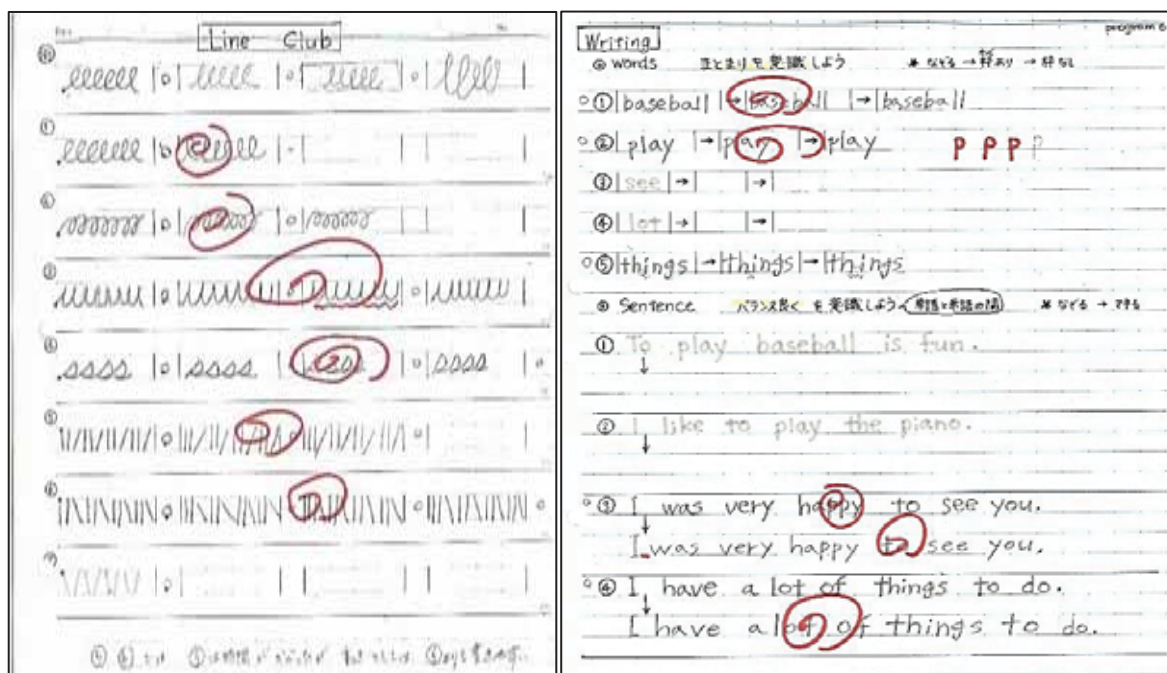 Line Club
⓪
①
②
③
④
⑤
⑥
⑦
Writing
program 6
◎ words まとまりを意識しよう * なぞる → 枠あり → 枠なし
○① baseball → baseball → baseball
○② play → play → play p p p p
③ see → →
④ lot → →
○⑤ things → things → things
◎ Sentence バランス良く を意識しよう 単語と単語の間 * なぞる → マネる
① To play baseball is fun.
↓
② I like to play the piano.
↓
○③ I was very happy to see you.
↓
I was very happy to see you.
○④ I have a lot of things to do.
↓
I have a lot of things to do.